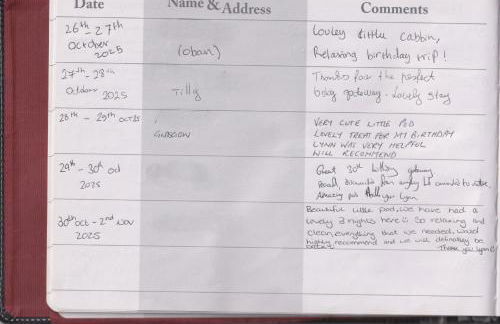 Date Name & Address Comments
26th - 27th
October
2025
(Oban)
Lovley little Cabbin,
Relaxing birthday trip!
27th - 28th
October 2025
Tilly
Thanks for the perfect
bday getaway - Lovely stay
28th - 29th OCT 25
GLASGOW
VERY CUTE LITTLE POD
LOVELY TREAT FOR MY BIRTHDAY
LYNN WAS VERY HELPFUL
WILL RECOMMEND
29th - 30th oct
2025
Great 30th birthday getaway
disconnected from & connected to nature
Amazing pod Thank you Lynn
30th Oct - 2nd Nov
2025
Beautiful little pod, we have had a
lovely 3 nights here :) So relaxing and
clean, everything that we needed, would
highly recommend and we will definatley be
back
Thank you Lynn